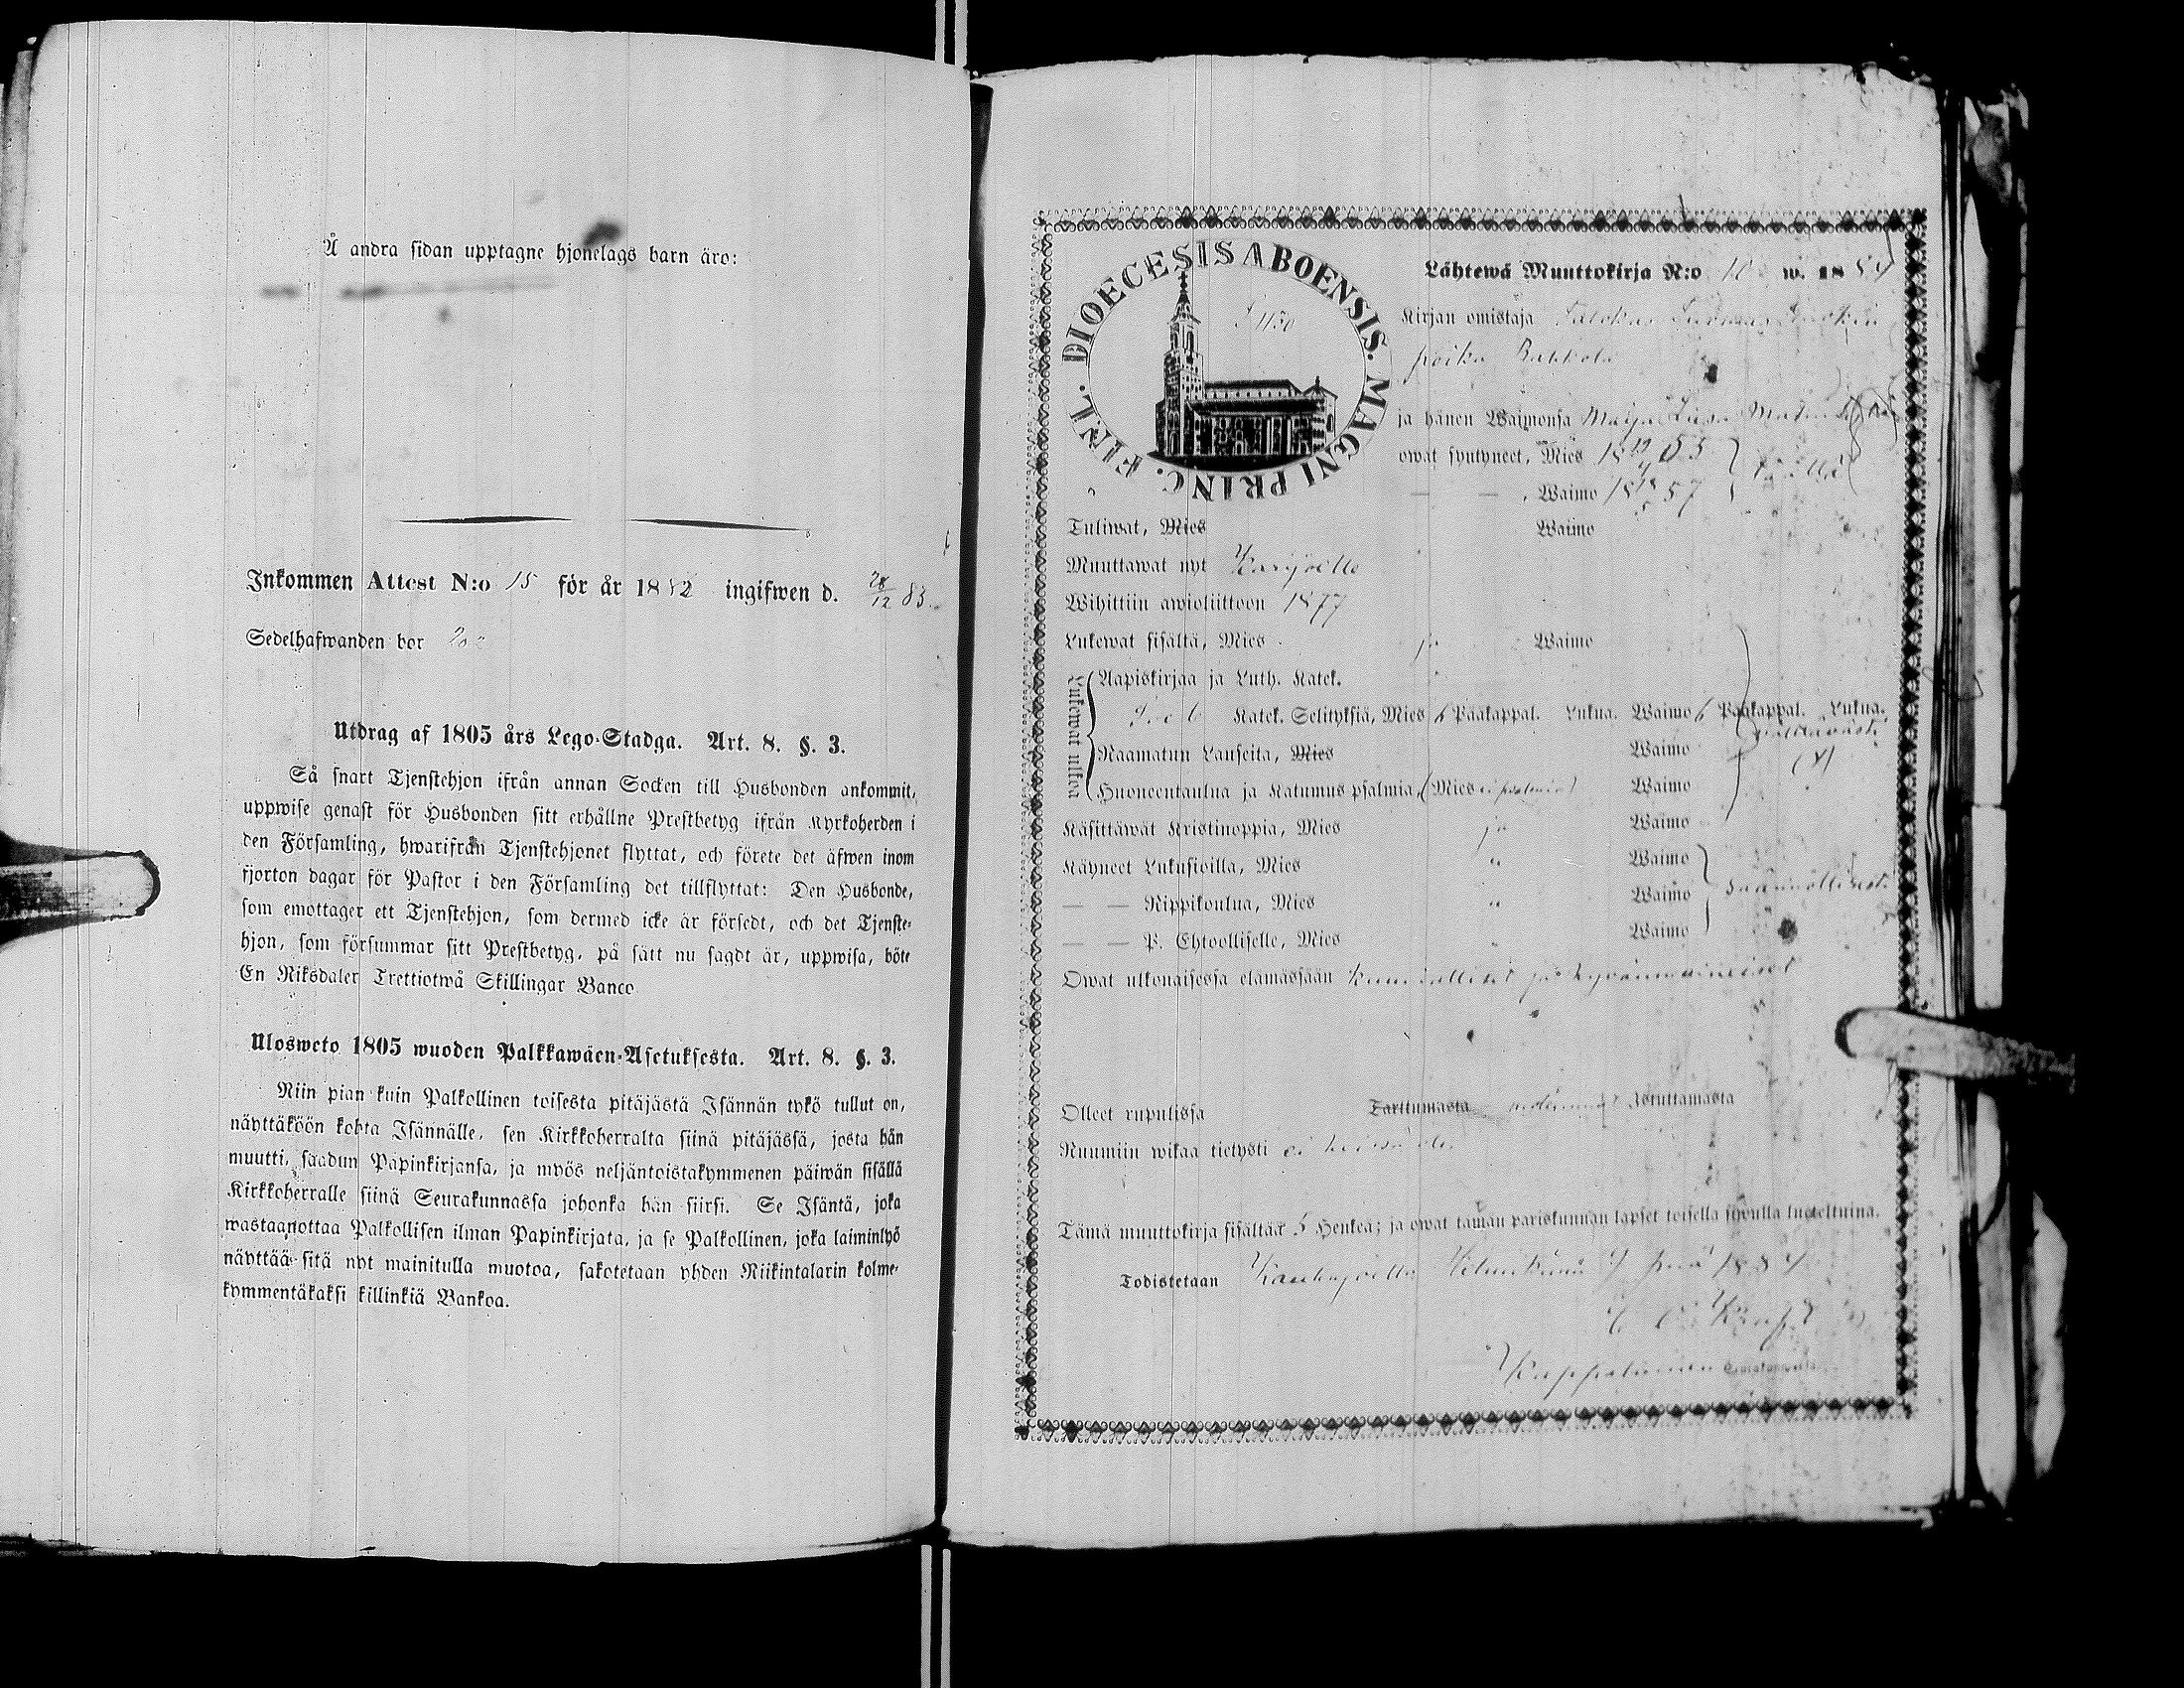 Å andra sidan upptagne hjonelags barn äro:
Inkommen Attest N:o 15 för år 1882 ingifwen d. 28/12 83.
Sedelhafwanden bor
Utdrag af 1805 års Lego-Stadga. Art. 8. §. 3.
Så snart Tjenstehjon ifrån annan Socken till Husbonden ankommit,
uppwise genast för Husbonden sitt erhållne Prestbetyg ifrån Kyrkoherden i
den Församling, hwarifrån Tjenstehjonet flyttat, och förete det äfwen inom
fjorton dagar för Pastor i den Församling det tillflyttat: Den Husbonde,
som emottager ett Tjenstehjon, som dermed icke är försedt, och det Tjenste-
hjon, som försummar sitt Prestbetyg, på sätt nu sagdt är, uppwisa, böte
En Riksdaler Trettiotwå Skillingar Banco
Ulosweto 1805 wuoden Palkkawäen-Asetuksesta. Art. 8. §. 3.
Niin pian kuin Palkollinen toisesta pitäjästä Isännän tykö tullut on,
näyttäköön kohta Isännälle, sen Kirkkoherralta siinä pitäjässä, josta hän
muutti, saadun Papinkirjansa, ja myös neljäntoistakymmenen päiwän sisällä
Kirkkoherralle siinä Seurakunnassa johonka hän siirsi. Se Isäntä, joka
wastaanottaa Palkollisen ilman Papinkirjata, ja se Palkollinen, joka laiminlyö
näyttää sitä nyt mainitulla muotoa, sakotetaan yhden Riikintalarin kolme-
kymmentäkaksi killinkiä Bankoa.
DIOECESIS ABOENSIS. MAGNI PRINC. FINL.
Lähtewä Muuttokirja N:o 10 w. 1884
Kirjan omistaja
poika
ja hänen Waimonsa Maija Liisa
owat syntyneet, Mies 18 53
— — , Waimo 18 57
Tuliwat, Mies Waimo
Muuttawat nyt Karijoelle
Wihittiin awioliittoon 1877
Lukewat sisältä, Mies ja Waimo
Lukewat ulkoa
Aapiskirjaa ja Luth. Katek.
Katek. Selityksiä, Mies 6 Pääkappal. Lukua. Waimo 6 Pääkappal. Lukua.
Raamatun Lauseita, Mies Waimo
Huoneentaulua ja Katumus psalmia, Mies Waimo
Käsittäwät Kristinoppia, Mies ja Waimo
Käyneet Lukusioilla, Mies " Waimo
— — Rippikoulua, Mies " Waimo säännöllisesti
— — P. Ehtoolliselle, Mies " Waimo
Owat ulkonaisessa elämässään kunnialliset ja hyvänmaineiset
Olleet rupulissa Tarttumasta Istuttamasta
Ruumiin wikaa tietysti ei
Tämä muuttokirja sisältää 5 Henkeä; ja owat tämän pariskunnan lapset toisella sywulla lueteltuina.
Todistetaan Kauhajoella Helmikuun 4 pnä 1884
Kappalainen